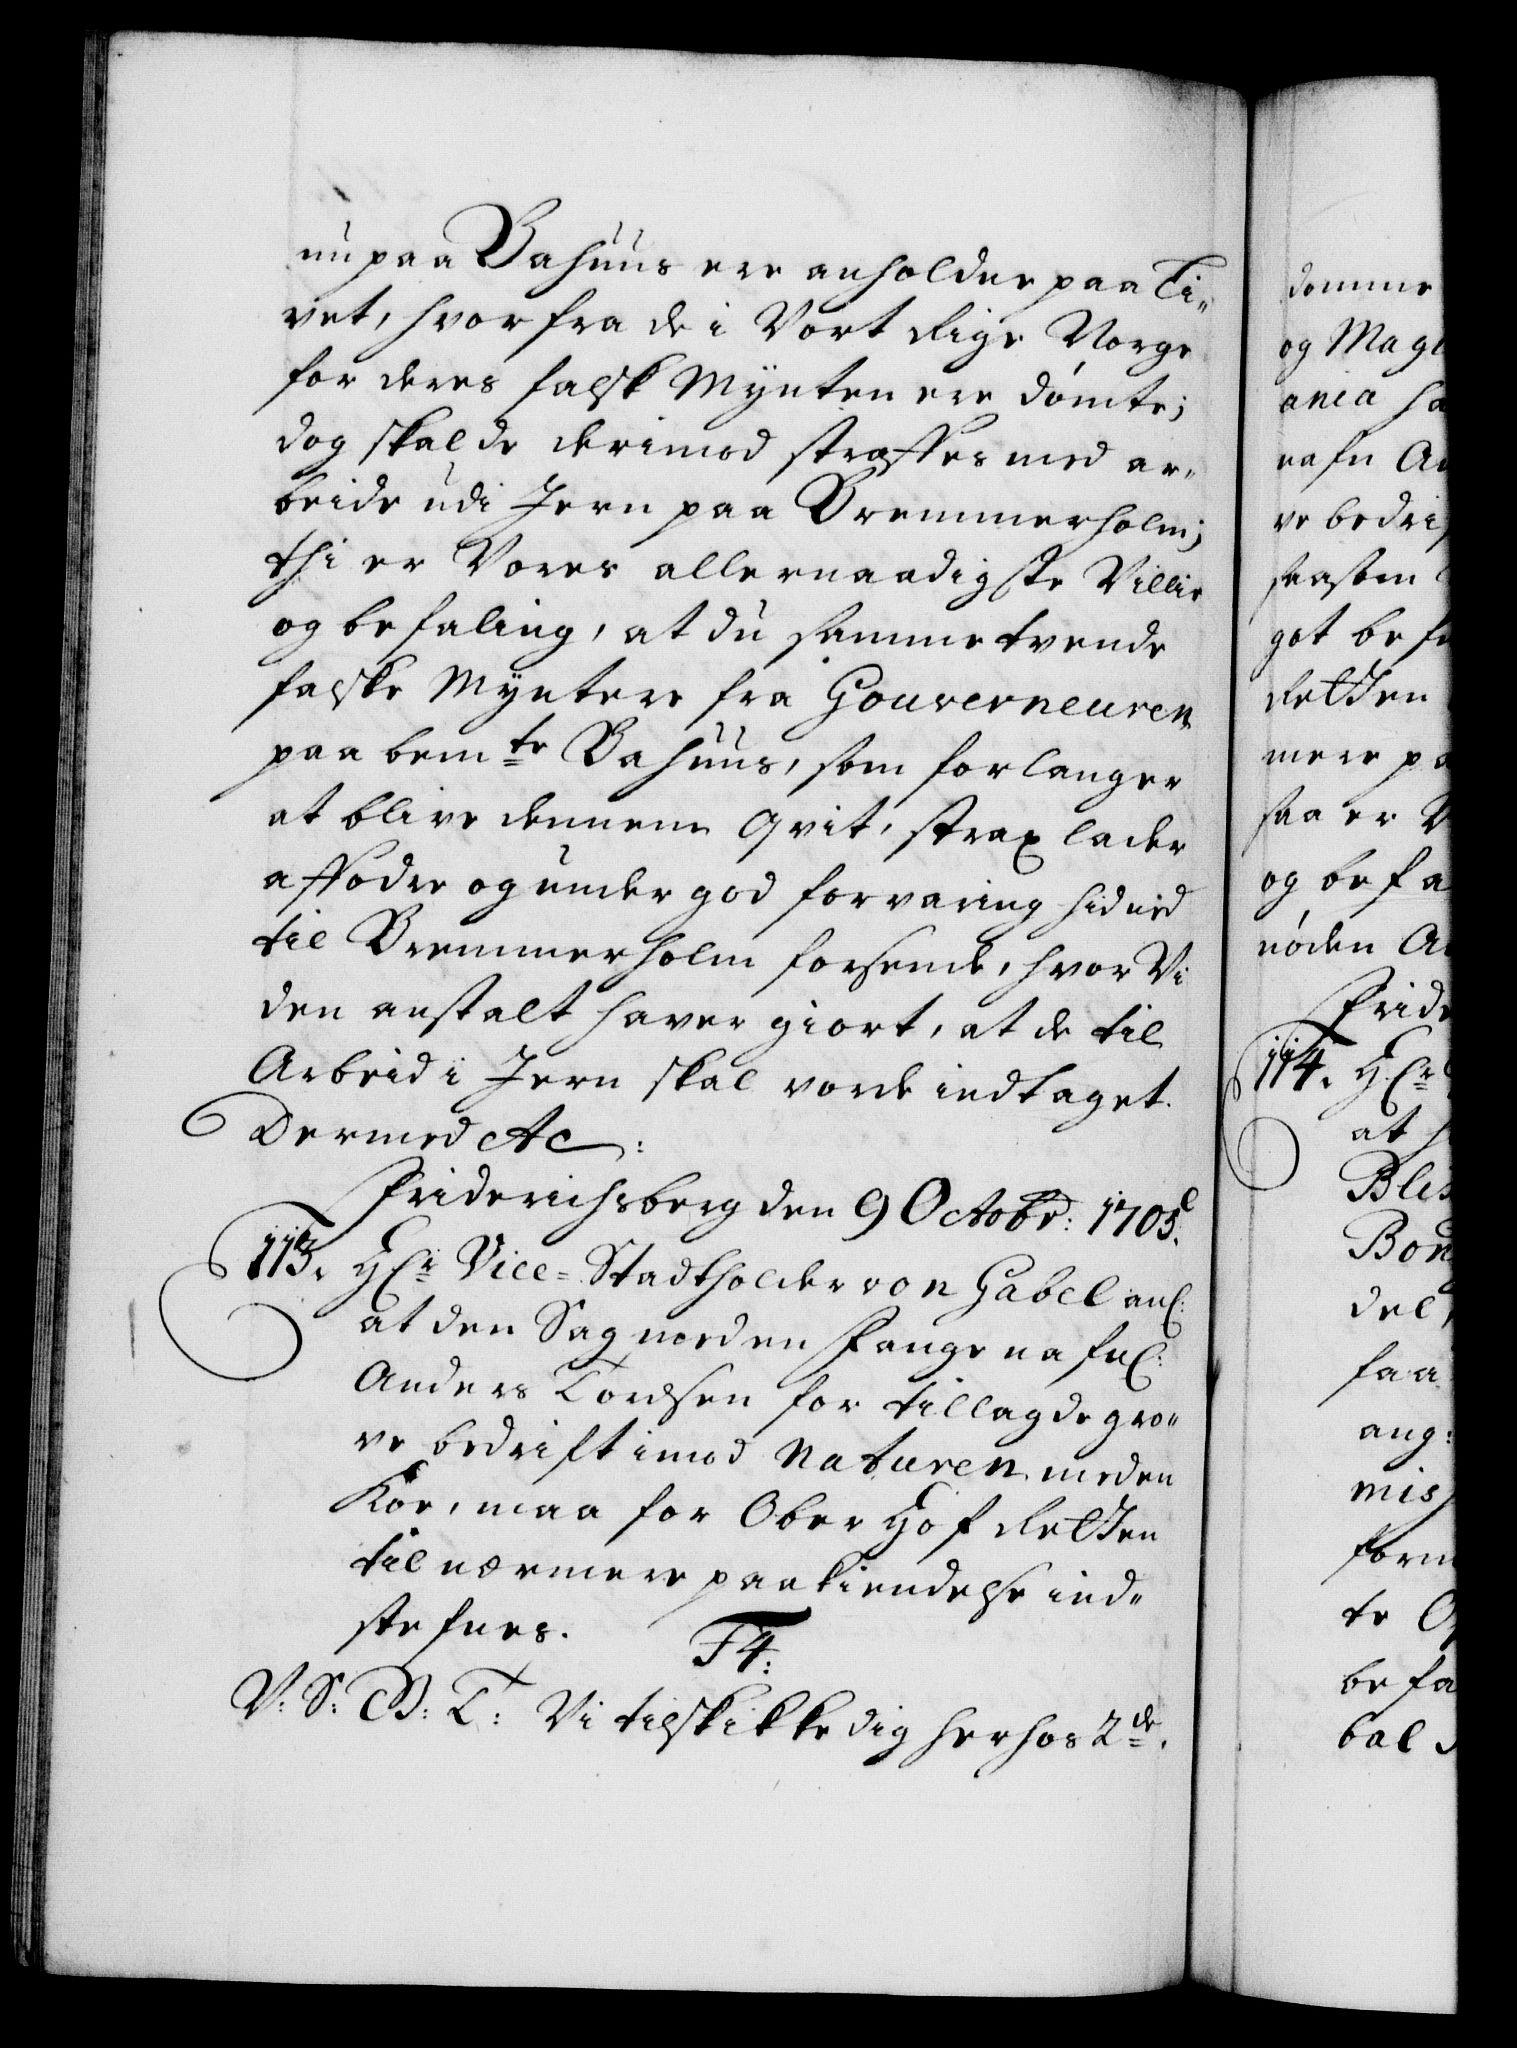 nu paa Bahuus ere anholdne paa Li„
vet, hvorfra de i Vort Rige Norge
for deres falsk Mynten ere dömte;
dog skal de derimod straffes med ar„
beide udi Jern paa Bremmerholm;
thi er Vores allernaadigste Villie
og befaling, at du samme tvende
falske Myntere fra Gouverneuren
paa bemte Bahuus, som forlanger
at blive dennem qvit, strax lader
affodre og under god forvaring hid ned
til Bremmerholm forsende, hvor Vi
den anstalt haver giort, at de til
Arbeid i Jern skal vorde indtaget.
Dermed etc:
Friderichsberg den 9 Octobr: 1705.
113. HEr Vice-Stadtholder von Gabel anl:
at den Sag mod en Fange nafnl:
Anders Tordsen for tillagde gro„
ve bedrift imod Naturen med en
Koe, maa for Ober Hof Retten
til nærmere paakiendelse ind„
stefnes.
F4:
V: S: G: T: Vi tilskikke dig herhos 2de,
domme
og Mag
ania
nafn
ve bedri
saasom
got
Retten
mere
saa er
og befa
nöden
Frid
114. HEr
at
del
faa
ang:
mis
te
befa